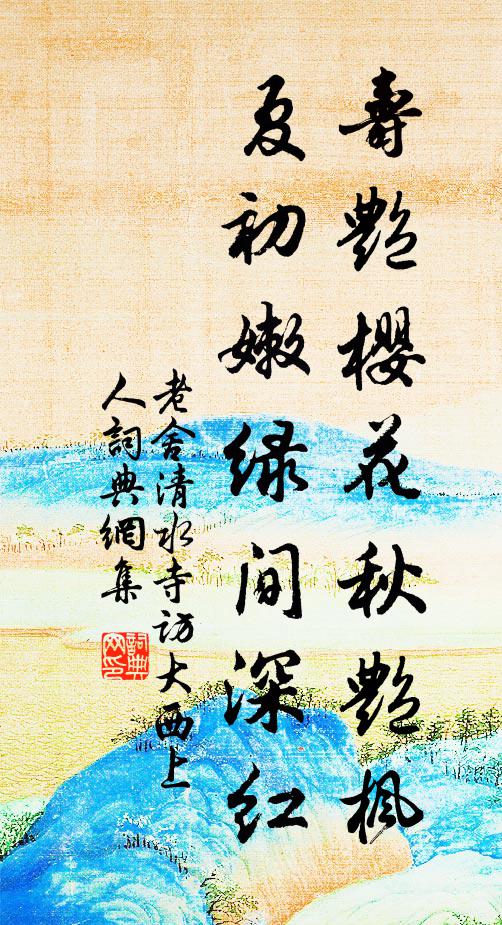 壽艷櫻花秋艷楓
夏初嫩绿间深红
老舍清水寺访大西上
人詞典網集
詞典网印